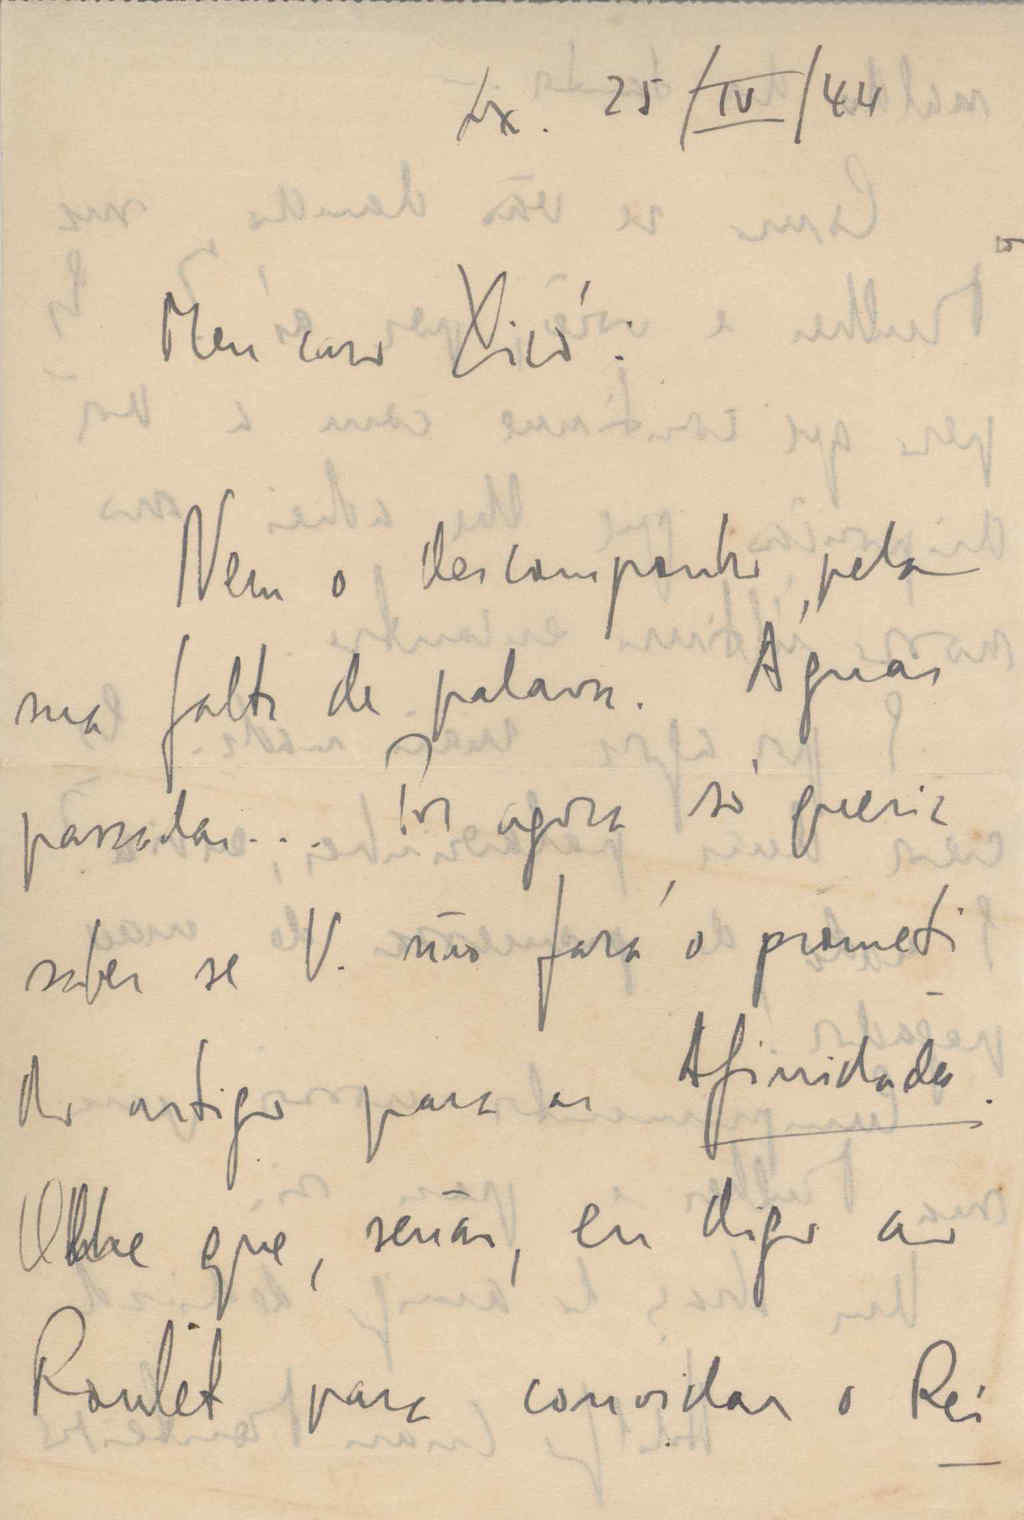 Lx. 25/IV/44
Meu caro Xicó:
Nem o descomponho pela
sua falta de palavra. Águas
passadas... Por agora só queria
saber se V. não fará o prometi
do artigo para as Afinidades.
Olhe que, senão, eu digo ao
Roulet para convidar o Rei